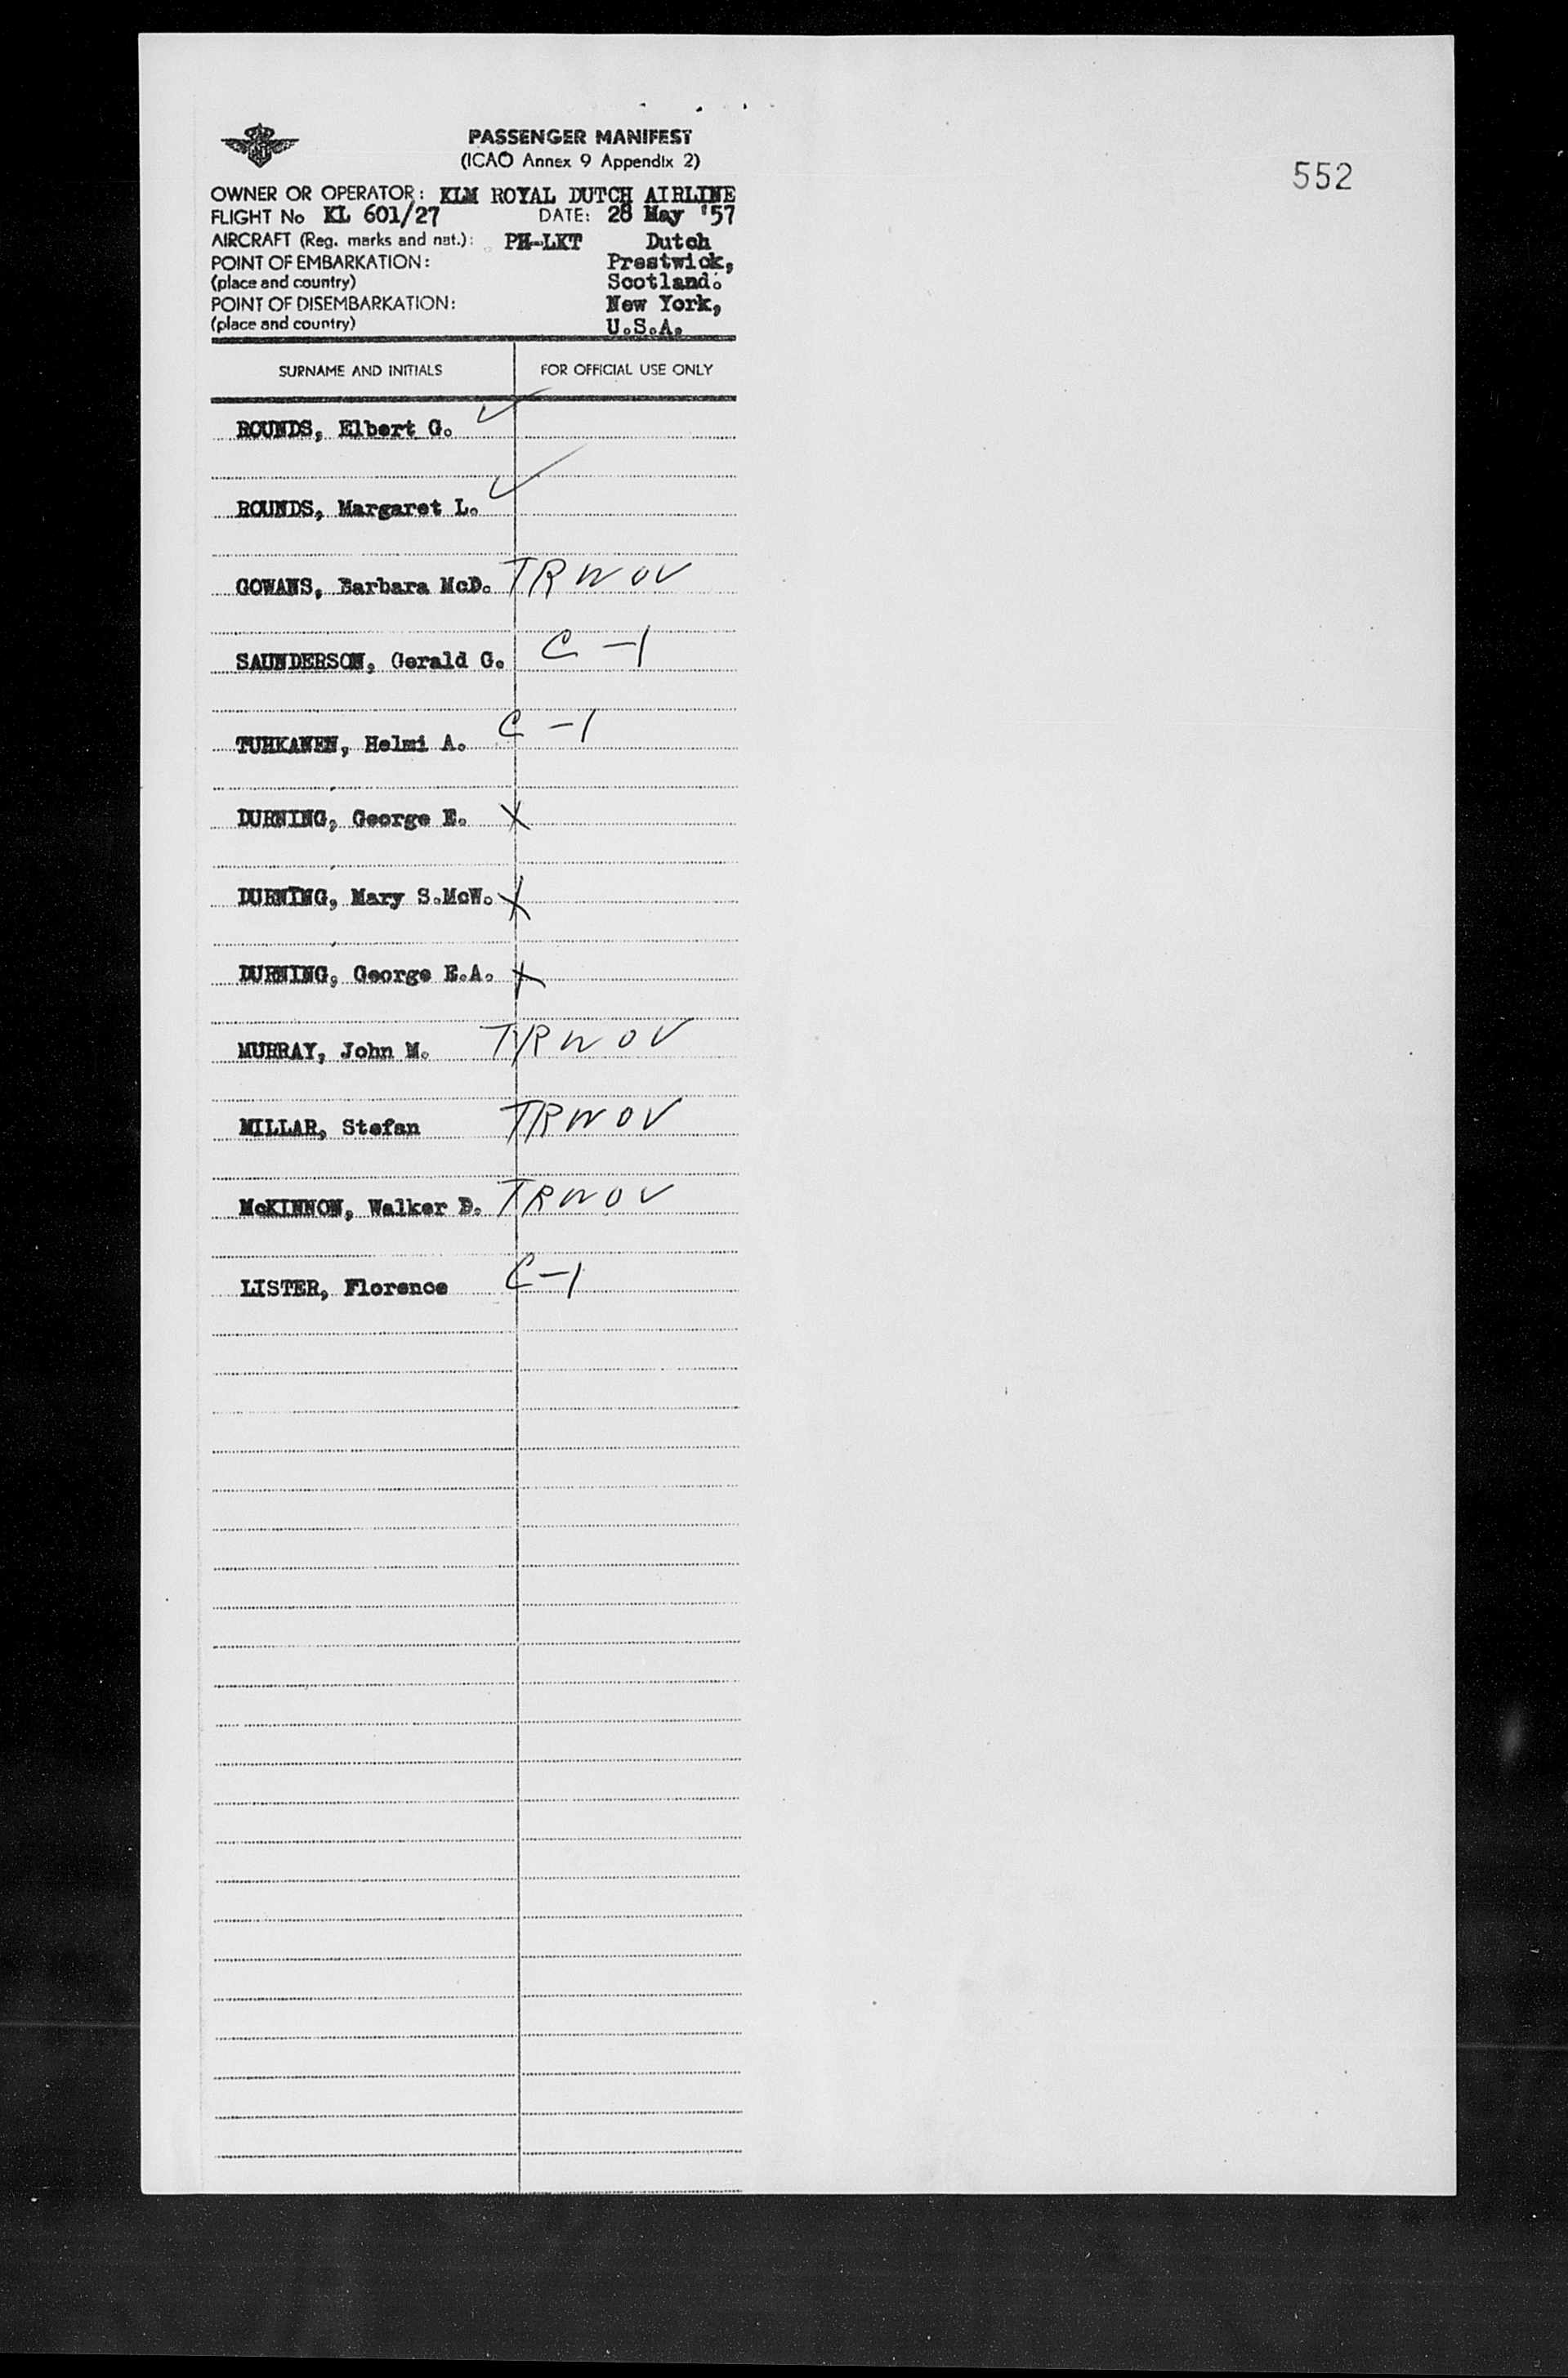 PASSENGER MANIFEST
(ICAO Annex 9 Appendix 2)
552
OWNER OR OPERATOR: KLM ROYAL DUTCH AIRLINE
FLIGHT No KL 601/27 DATE: 28 May '57
AIRCRAFT (Reg. marks and nat.): PH-LKT Dutch
POINT OF EMBARKATION: Prestwick,
(place and country) Scotland.
POINT OF DISEMBARKATION: New York,
(place and country) U.S.A.
SURNAME AND INITIALS FOR OFFICIAL USE ONLY
ROUNDS, Elbert G. ✓
ROUNDS, Margaret L. ✓
GOWANS, Barbara McD. TRWOV
SAUNDERSON, Gerald G. C-1
TUHKANEN, Helmi A. C-1
DURNING, George E. X
DURNING, Mary S.McW. X
DURNING, George E.A. X
MURRAY, John M. TRWOV
MILLAR, Stefan TRWOV
McKINNON, Walker D. TRWOV
LISTER, Florence C-1